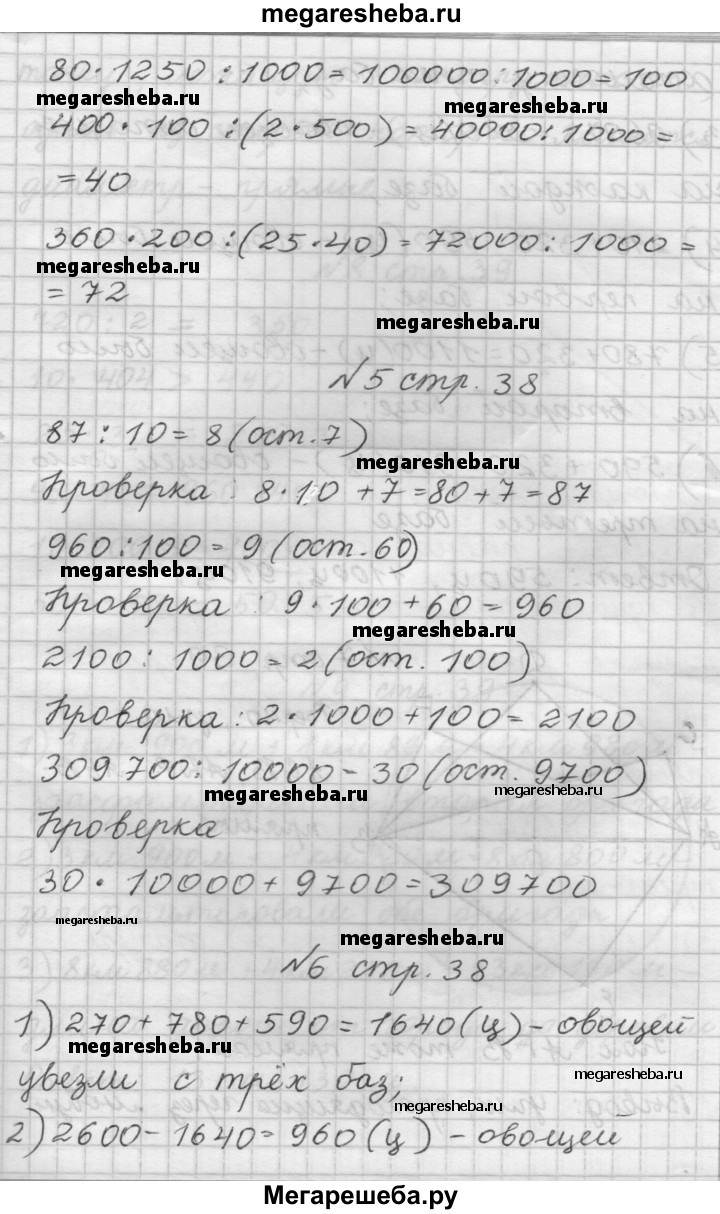 megaresheba.ru
80·1250:1000=100000:1000=100
megaresheba.ru
megaresheba.ru
400·100:(2·500)=40000:1000=
=40
360·200:(25·40)=72000:1000=
megaresheba.ru
=72
megaresheba.ru
№5 стр. 38
87:10=8(ост.7)
megaresheba.ru
Проверка: 8·10+7=80+7=87
960:100=9(ост.60)
megaresheba.ru
Проверка: 9·100+60=960
megaresheba.ru
2100:1000=2(ост. 100)
Проверка: 2·1000+100=2100
309 700:10000-30(ост. 9700)
megaresheba.ru
megaresheba.ru
Проверка
30·10000+9700=309700
megaresheba.ru
megaresheba.ru
№6 стр. 38
1) 270+780+590=1640(ц)-овощей
megaresheba.ru
увезли с трёх баз;
megaresheba.ru
megaresheba.ru
2) 2600-1640=960(ц)-овощей
Мегарешеба.ру